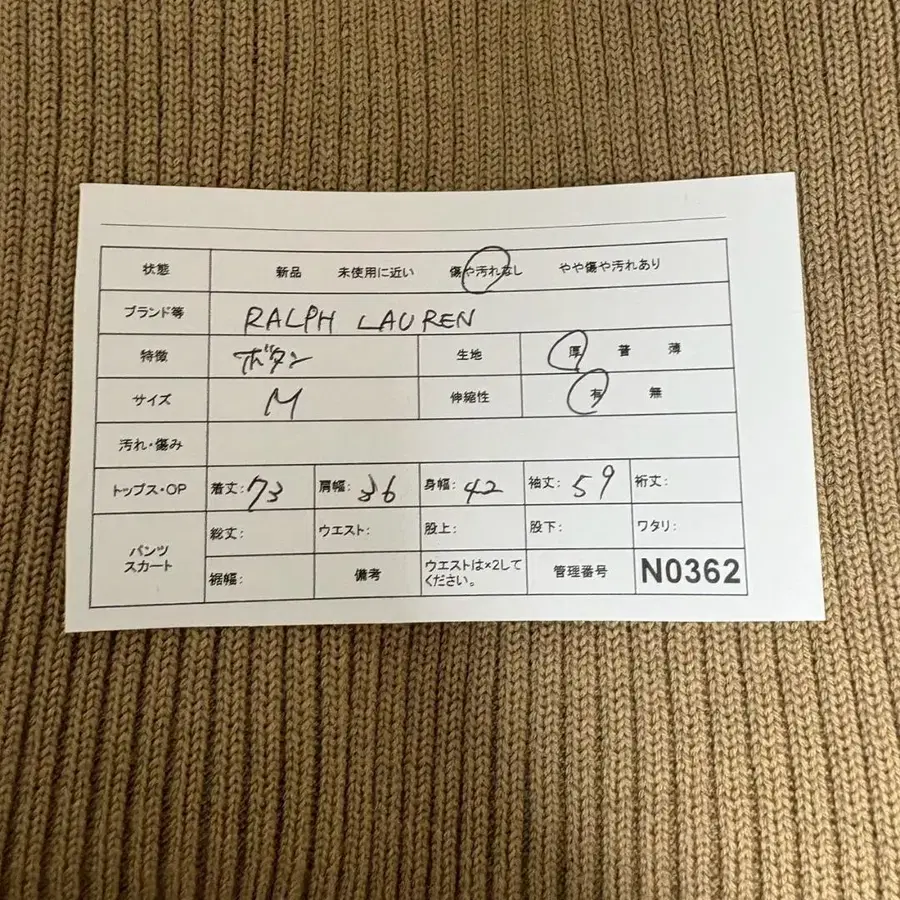 状態 新品 未使用に近い 傷や汚れなし やや傷や汚れあり
ブランド等 RALPH LAUREN
特徴 ボタン 生地 厚 普 薄
サイズ M 伸縮性 有 無
汚れ・傷み
トップス・OP 着丈: 73 肩幅: 36 身幅: 42 袖丈: 59 裄丈:
パンツ スカート 総丈: ウエスト: 股上: 股下: ワタリ:
裾幅: 備考 ウエストは×2して
ください。 管理番号 N0362